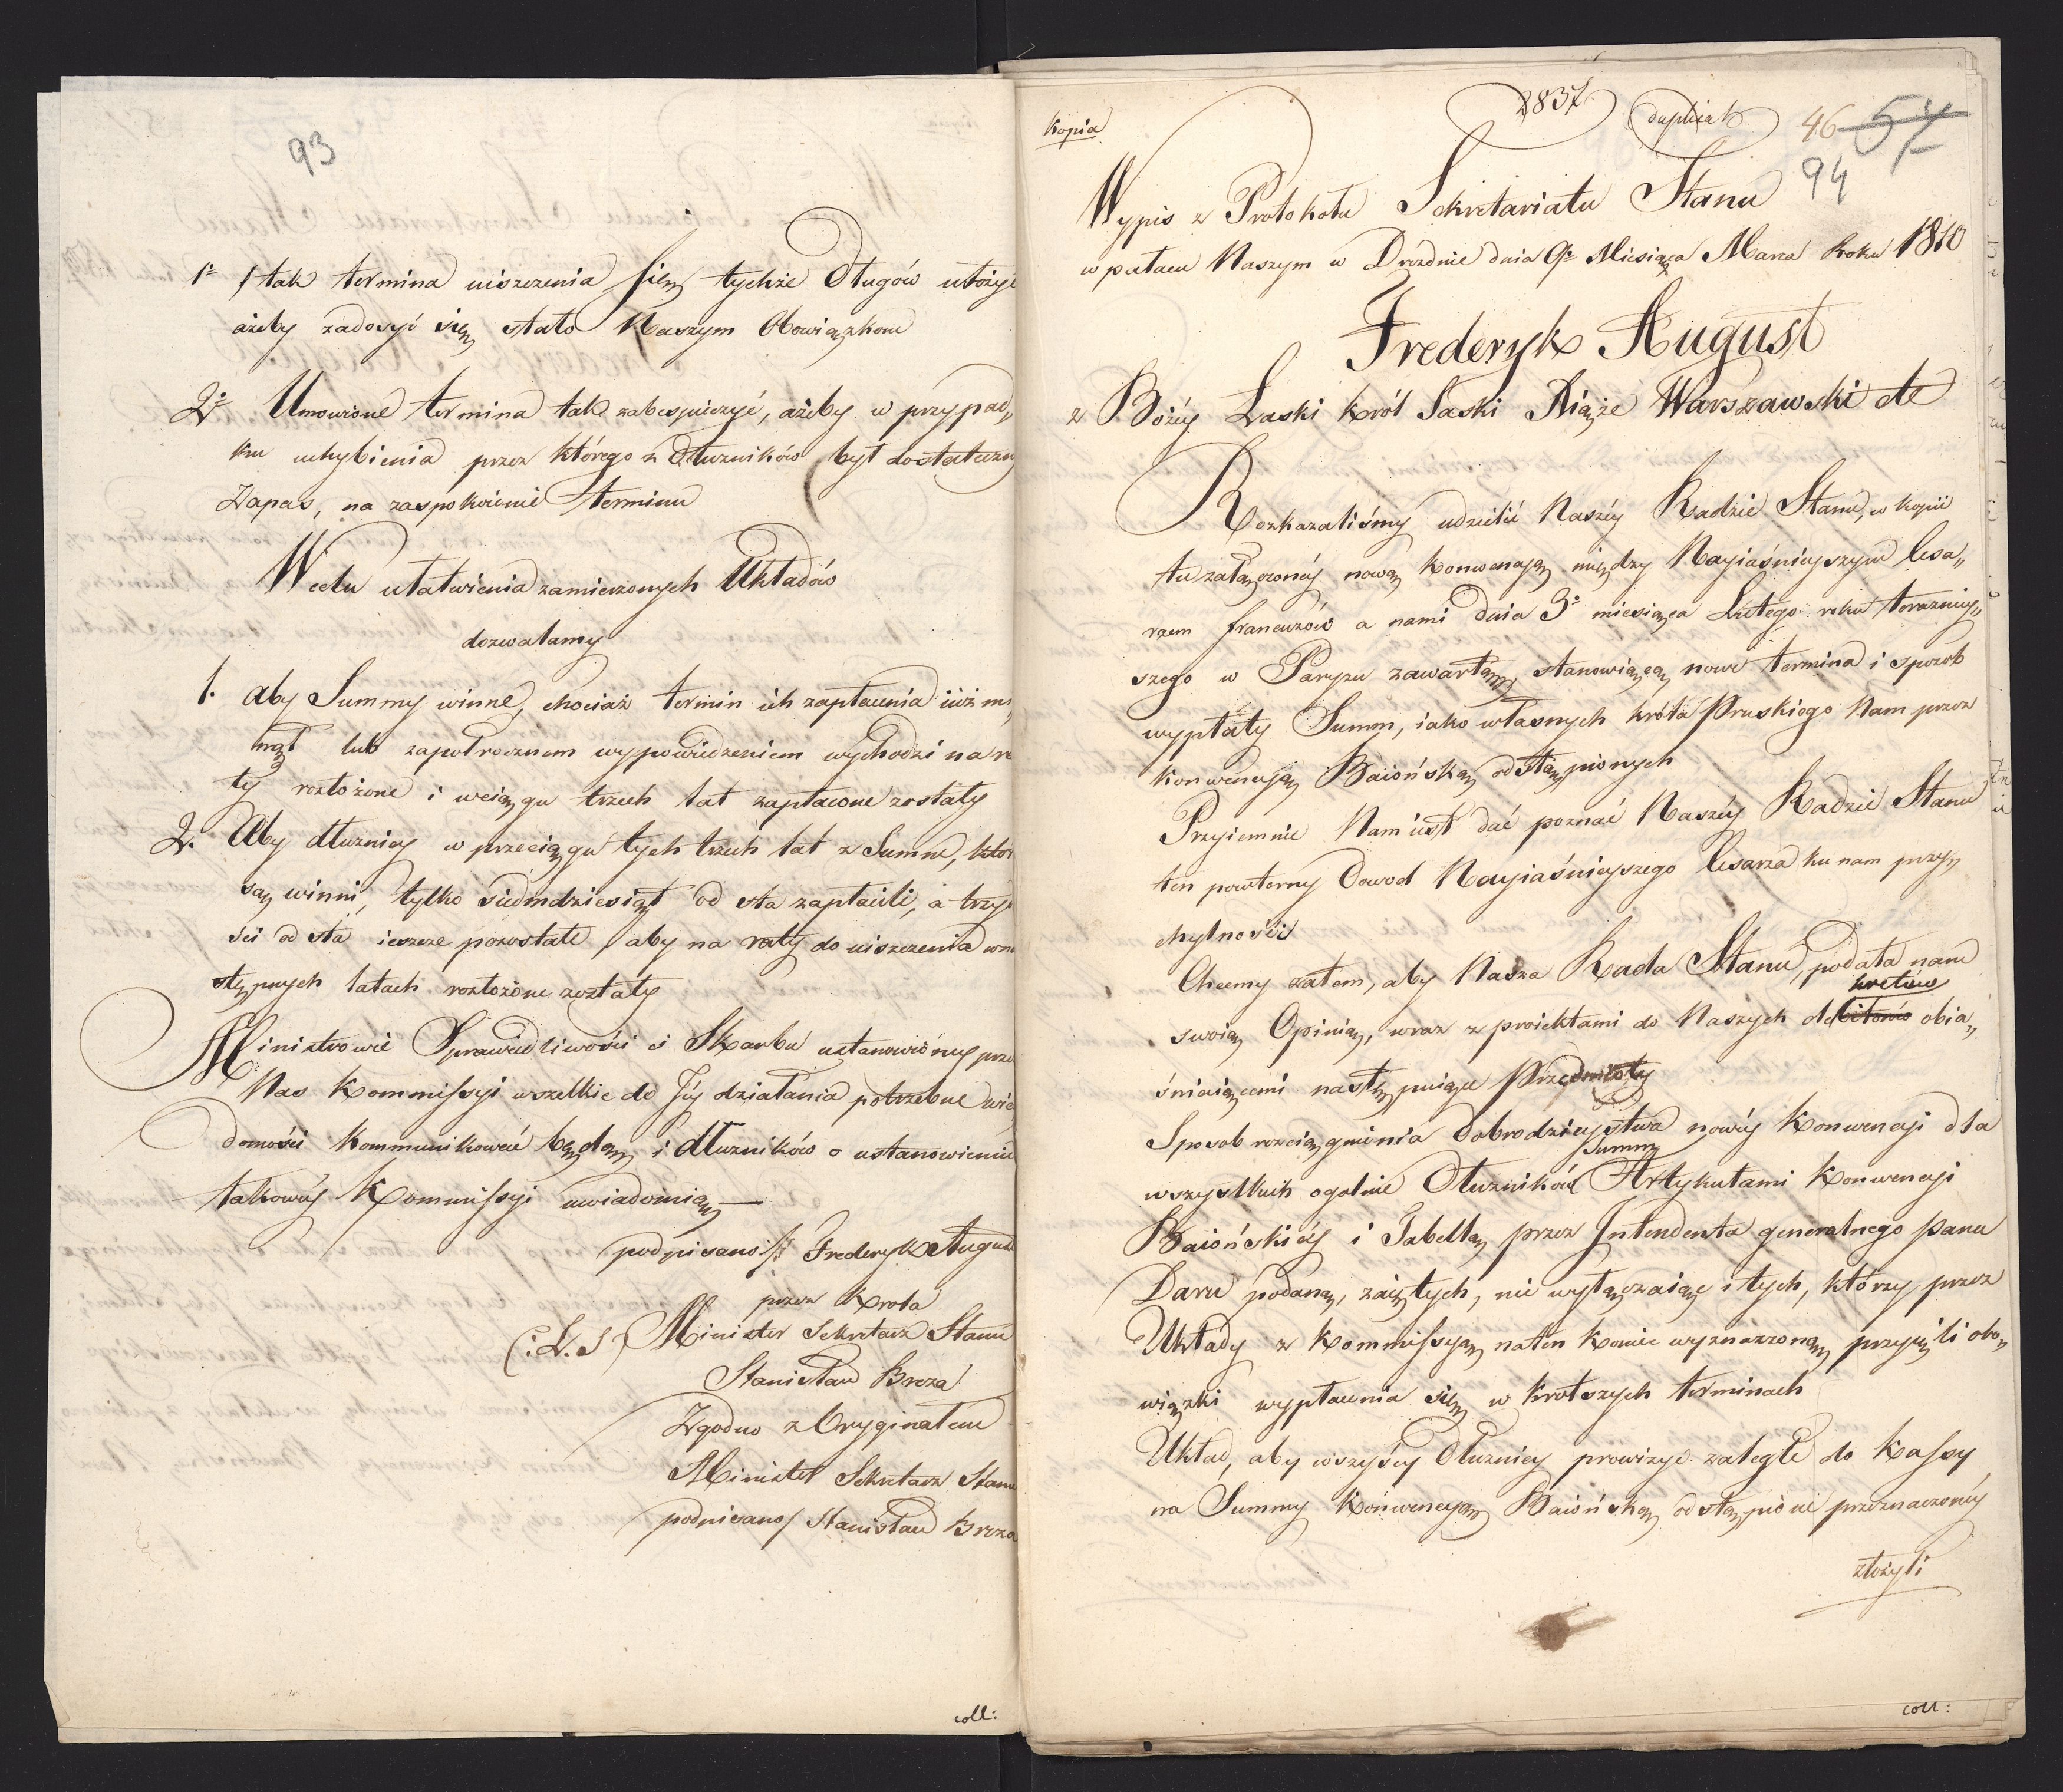 93
1º Jtak termina uiszczenia się tychże Długów ułożyć
ażeby zadosyć się stało Naszym Obowiązkom
2º Umowione termina tak zabespieczyć, ażeby w przypad„
ku uchybienia przez którego z Dłużników był dostateczny
Zapas, na zaspokoienie terminu
W celu ułatwienia zamierzonych Układów
dozwalamy
1. aby Summy winne, chociaż termin ich zapłacenia iuż mi„
nął lub zapołrocznem wypowiedzeniem wychodzi na ra
ty rozłożone i wciągu trzech lat zapłacone zostały
2. Aby dłużnicy w przeciągu tych trzech lat z Summ, któr
są winni, tylko siedmdziesiąt od sta zapłacili, a trzy
ści od sta ieszcze pozostałe, aby na raty do uiszczenia w na
stępnych latach rozłożone zostały
Ministrowie Sprawiedliwości i Skarbu ustanowioney prze
Nas Kommissyi wszelkie do Jéy działania potrzebne wia
domości kommunikować będą, i dłużników o ustanowieniu
takowéy Kommissyi uwiadomią
podpisano // Frederyk August
przez Króla
(:L.S) Minister Sekretarz Stanu
Stanisław Breza
Zgodno z Oryginałem
Minister Sekretarz Stanu
podpisano/ Stanisław Breza
coll:
Kopia
2837
duplikat
46 57
94
Wypis z Protokołu Sekretariatu Stanu
w pałacu Naszym w Dreźnie dnia 9º Miesiąca Marca Roku 1810
Frederyk August
z Bożéy Łaski Król Saski Xiąże Warszawski etc
Rozkazaliśmy udzielić Naszéy Radzie Stanu, w kopii
tu załączonéy nową Konwencyą między Nayiaśnieyszym Cesa„
rzem francuzów a nami dnia 3º miesiąca Lutego roku teraźniey„
szego w Paryżu zawartą, stanowiącą nowe termina i sposob
wypłaty Summ, iako własnych króla Pruskiego Nam przez
Konwencyą Baiońską odstąpionych
Przyiemnie Nam iest dać poznać Naszéy Radzie Stanu
ten powtorny Dowod Nayiaśnieyszego Cesarza ku nam przy„
chylności
Chcemy zatem, aby Nasza Rada Stanu, podała nam
swoią Opinią, wraz z proiektami do Naszych debitorów obia„
kretów
śniaiącemi następuiące Przedmioty
Sposob rozciągnienia Dobrodzieystwa nowéy Konwencyi dla
wszystkich ogolnie Dłużników Artykułami Konwencyi
Summ
Baiońskiéy i Tabellą przez Jntendenta generalnego pana
Daru podaną, zaiętych, nie wyłączaiąc i tych, którzy przez
Układy z Kommissyą na ten koniec wyznaczoną przyięli obo„
wiązki wypłacenia się w krotszych terminach
Układ, aby wszyscy Dłużnicy prowizye zaległe do Kassy,
na Summy Konwencyą Baiońską odstąpione przeznaczonéy
złożyli
coll: